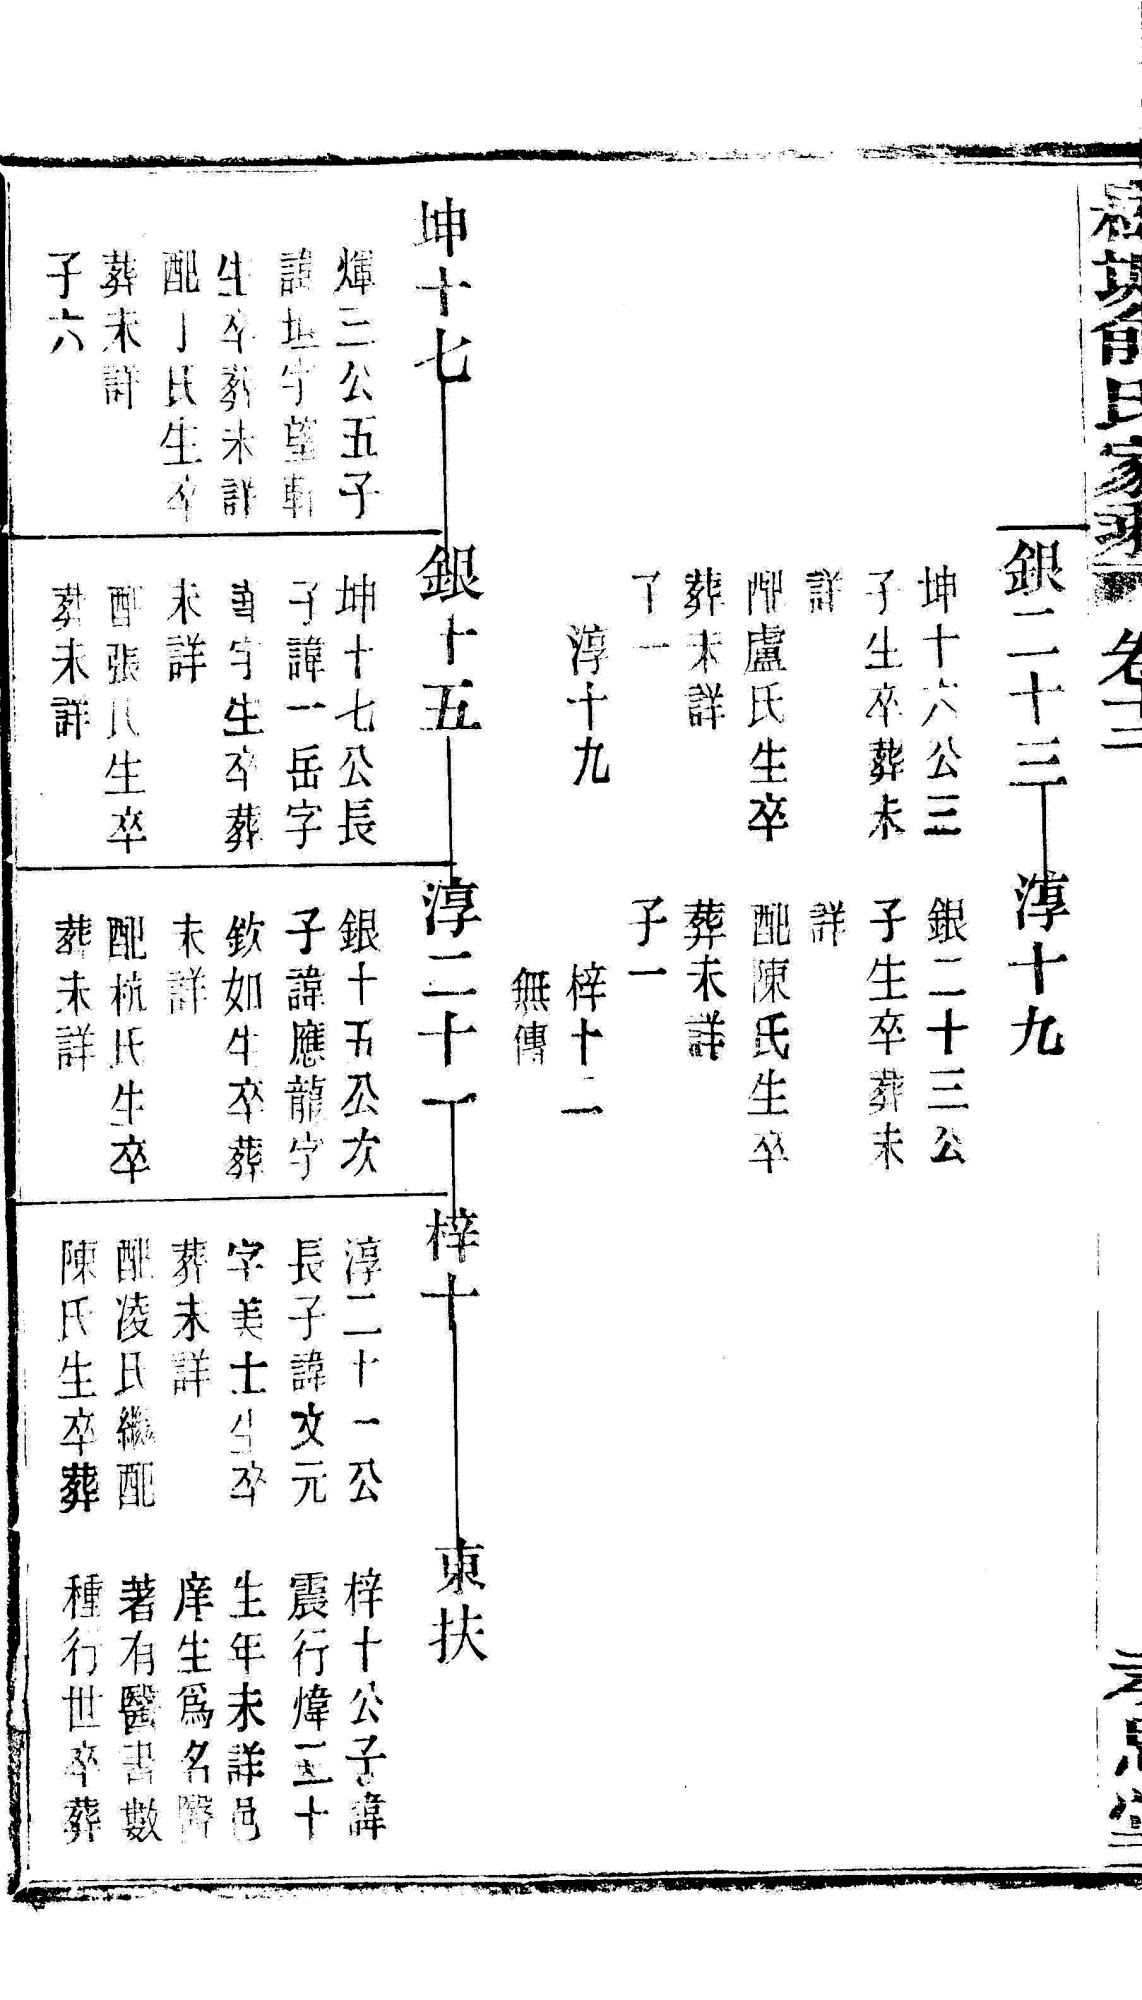 俞氏家乘
卷十二
孝思堂
銀二十三
坤十六公三
子生卒葬未
詳
配盧氏生卒
葬未詳
子一
淳十九
淳十九
銀二十三公
子生卒葬未
詳
配陳氏生卒
葬未詳
子一
梓十二
無傳
坤十七
煇三公五子
諱垣字望軒
生卒葬未詳
配丁氏生卒
葬未詳
子六
銀十五
坤十七公長
子諱一岳字
字生卒葬
未詳
配張氏生卒
葬未詳
淳二十一
銀十五公次
子諱應龍字
欽如生卒葬
未詳
配杭氏生卒
葬未詳
梓十
淳二十一公
長子諱文元
字美士生卒
葬未詳
配凌氏繼配
陳氏生卒葬
東扶
梓十公子諱
震行煒三十
生年未詳邑
庠生爲名醫
著有醫書數
種行世卒葬